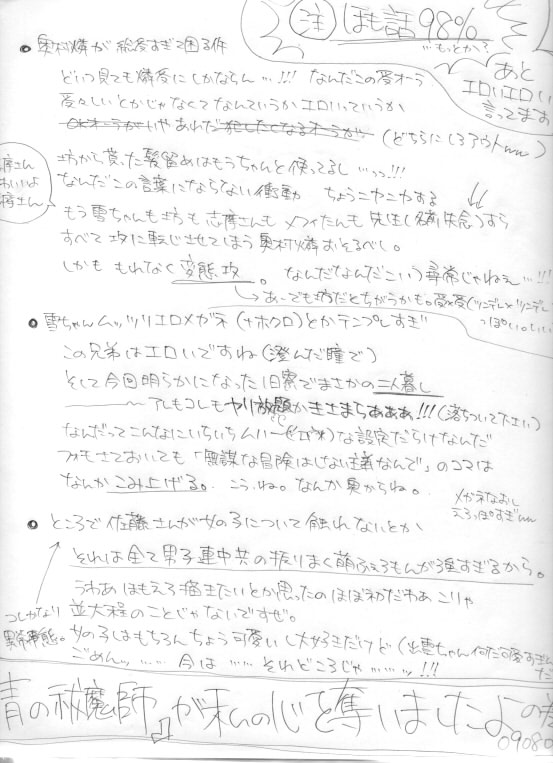 注 ほも話98%
…もっとか?
あと
エロいエロい
言ってます
● 奥村燐が総受すぎて困る件
どいつ見ても燐受にしかならん…!!! なんだこの受オーラ
受々しいとかじゃなくてなんていうかエロいっていうか
(どちらにしろアウトwww)
坊から貰った髪留めはもうちゃんと使ってるし…っっ!!!
なんだこの言葉にならない衝動 ちょうニヤニヤする
志摩さん
かわいいよ
志摩さん
もう雪ちゃんも坊も志摩さんもメフィたんも先生(名前失念)すら
すべて攻に転じさせてしまう奥村燐おそるべし。
しかももれなく変態攻。 なんだなんだこいつ尋常じゃねぇ…!!!
→あ、でも坊だとちがうかも。受×受(ツンデレ×ツンデレ)
っぽい。いい
● 雪ちゃんムッツリエロメガネ(+ホクロ)とかテンプレすぎ
この兄弟はエロいですね(澄んだ瞳で)
そして今回明らかになった旧寮でまさかの二人暮し
アレもコレもヤリ放題かきさまらあああ!!!(落ちついて下さい)
なんだってこんなにいちいち な設定だらけなんだ
つかもさておいても「無謀な冒険はしない主義なんで」のコマは
なんかこみ上げる。こう、ね。なんか奥からね。
メガネなおし
えろっぽすぎww
● ところで佐藤さんが女の子について触れないとか
それは全て男子連中共の振りまく萌ふぇろもんが強すぎるから。
うわあほもえろ描きたいとか思ったのほぼわだわあこりゃ
並大程のことじゃないですぜ。
コレかなり
異常事態。
女の子はもちろんちょう可愛いし大好きだけど(出雲ちゃん何た可愛すぎんだ
ごめんッ…… 今は…… それどころじゃ………ッ!!!
青の祓魔師が私の心を奪いましたよの
09080